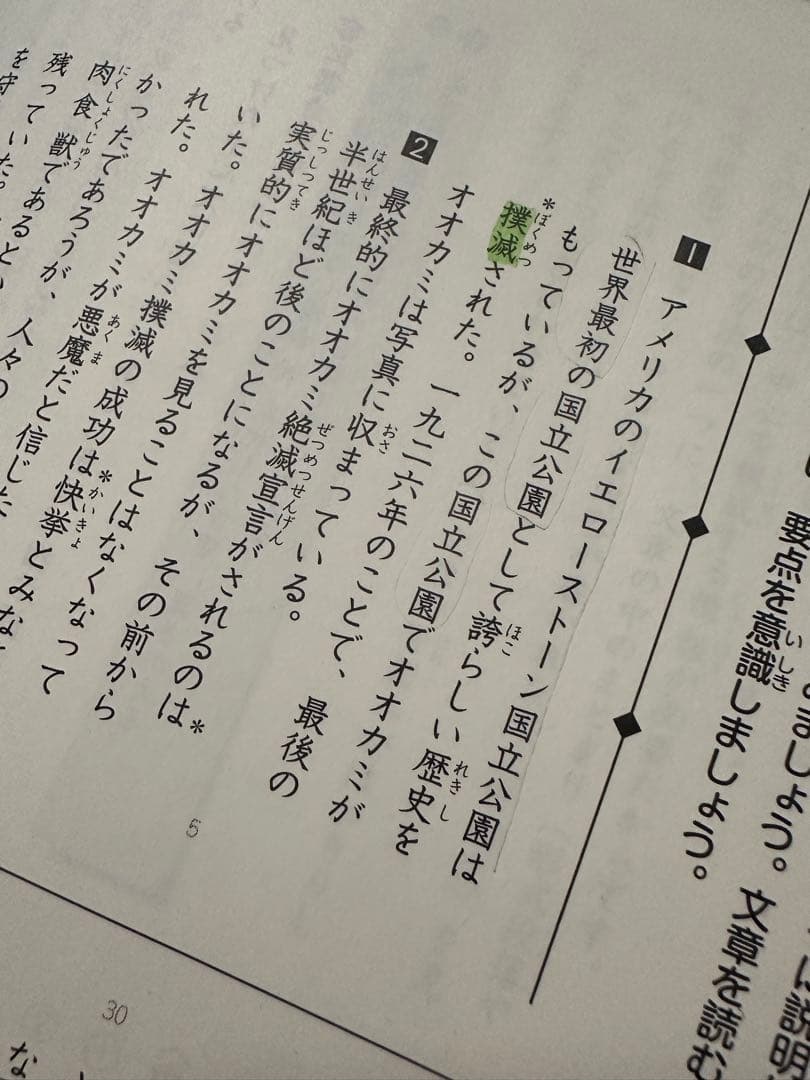 要点を意識しましょう。文章を読む
1
アメリカのイエローストーン国立公園は
世界最初の国立公園として誇らしい歴史を
もっているが、この国立公園でオオカミが
*撲滅された。一九二六年のことで、最後の
オオカミは写真に収まっている。
2
最終的にオオカミ絶滅宣言がされるのは*
半世紀ほど後のことになるが、その前から
実質的にオオカミを見ることはなくなって
いた。オオカミ撲滅の成功は*快挙とみな
れた。オオカミが悪魔だと信じた
かったであろうが、人々の
肉食獣であるとい
残っていた。
を守
5
30
な